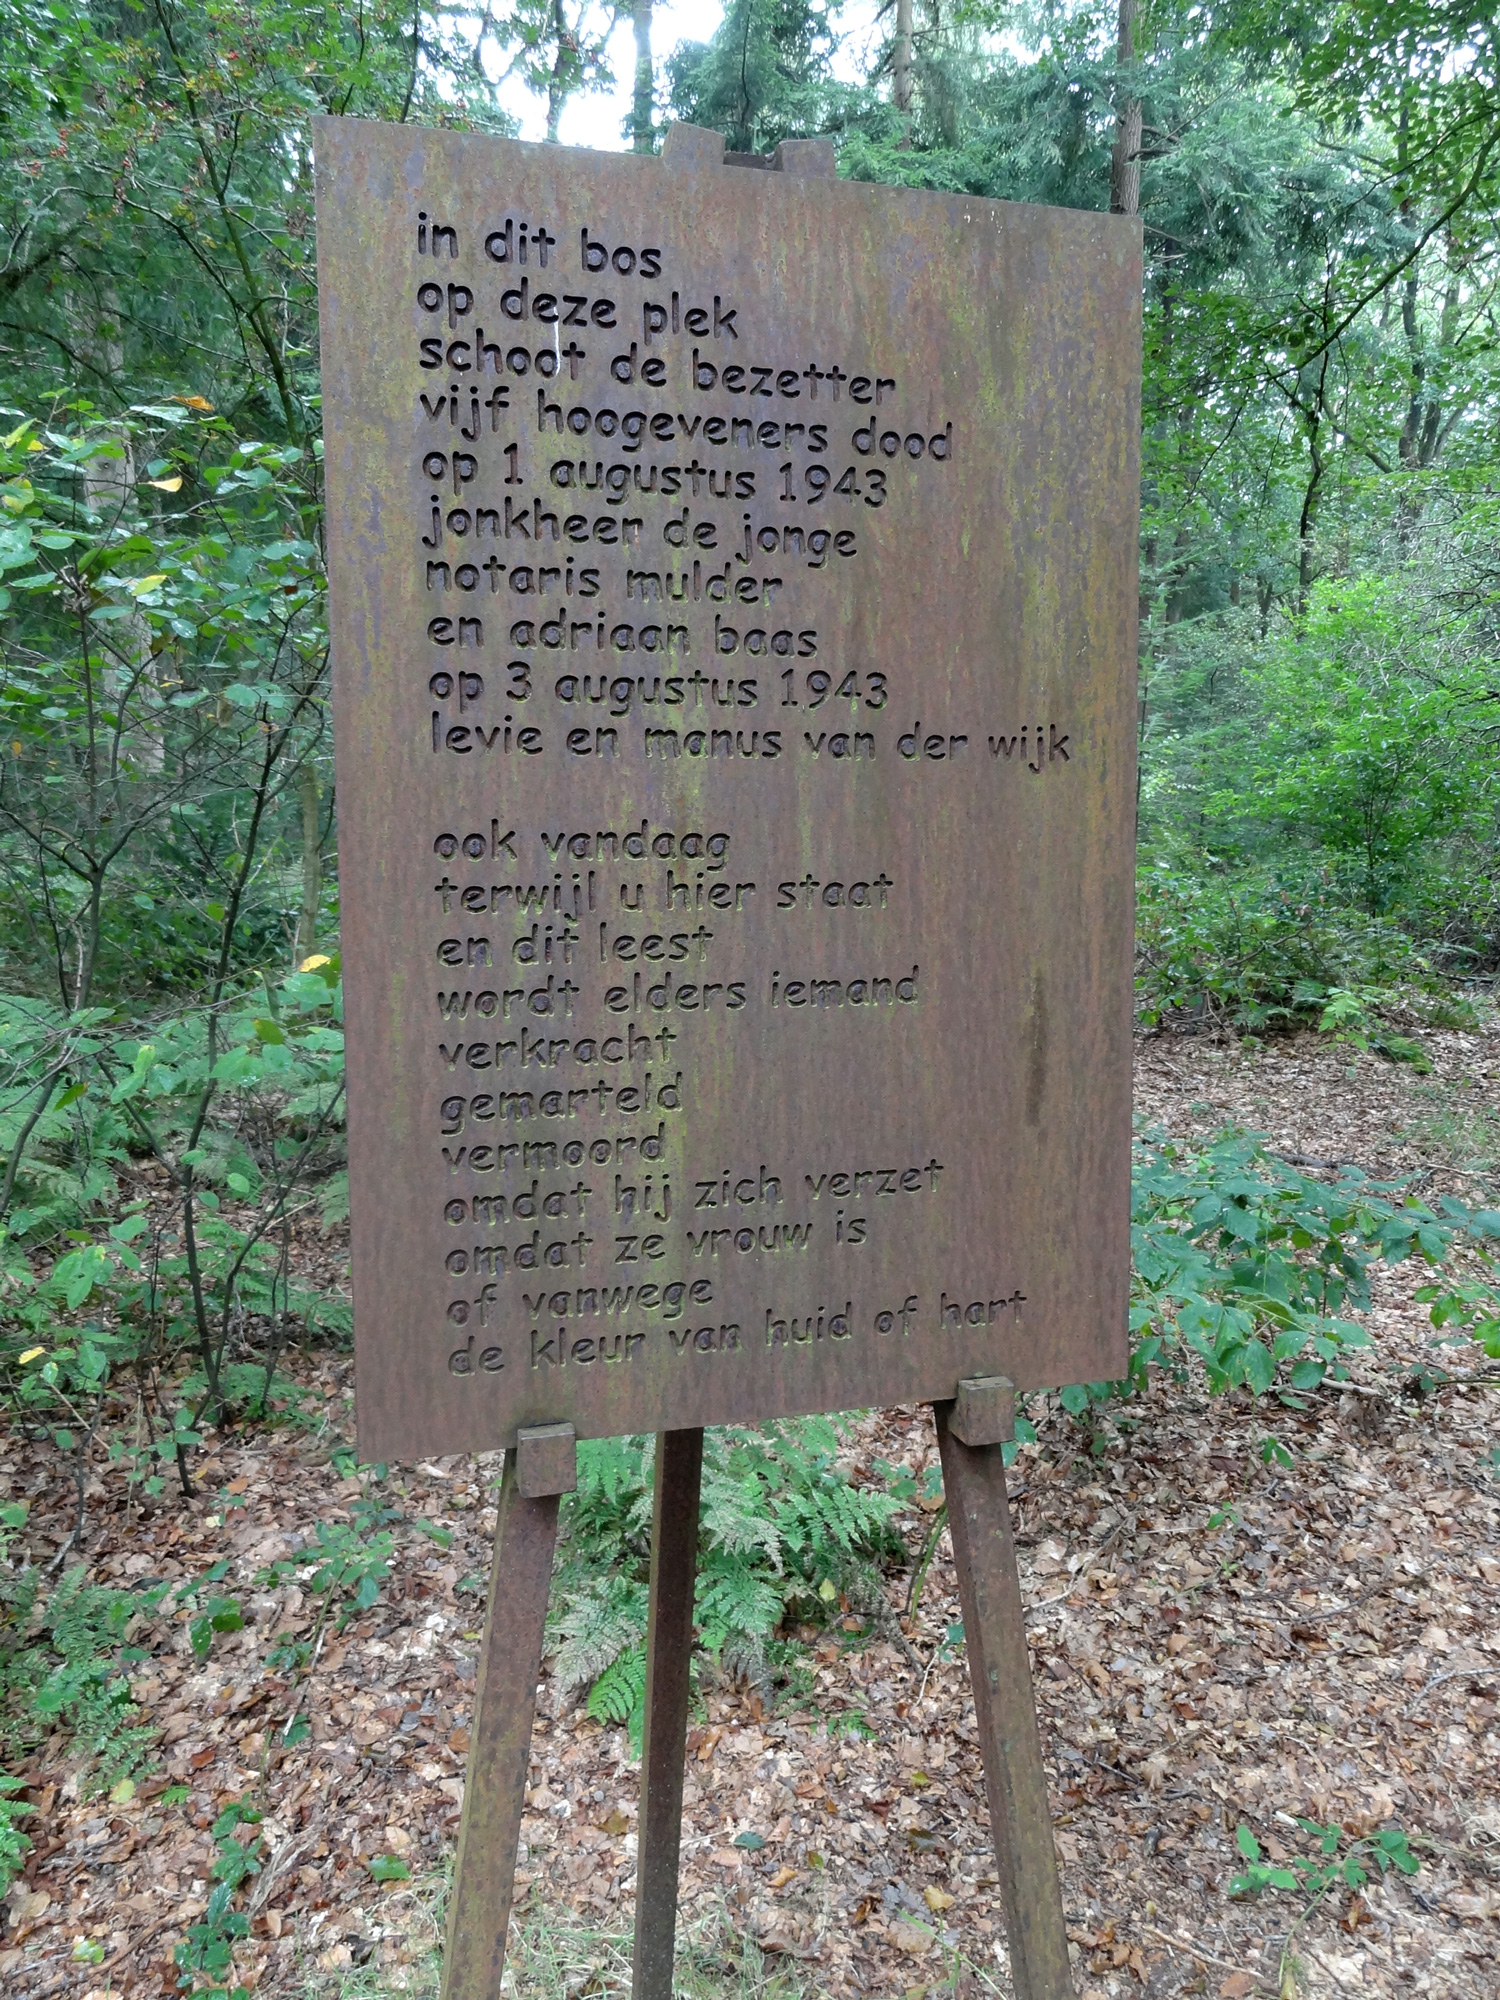 in dit bos
op deze plek
schoot de bezetter
vijf hoogeveners dood
op 1 augustus 1943
jonkheer de jonge
notaris mulder
en adriaan baas
op 3 augustus 1943
levie en manus van der wijk
ook vandaag
terwijl u hier staat
en dit leest
wordt elders iemand
verkracht
gemarteld
vermoord
omdat hij zich verzet
omdat ze vrouw is
of vanwege
de kleur van huid of hart